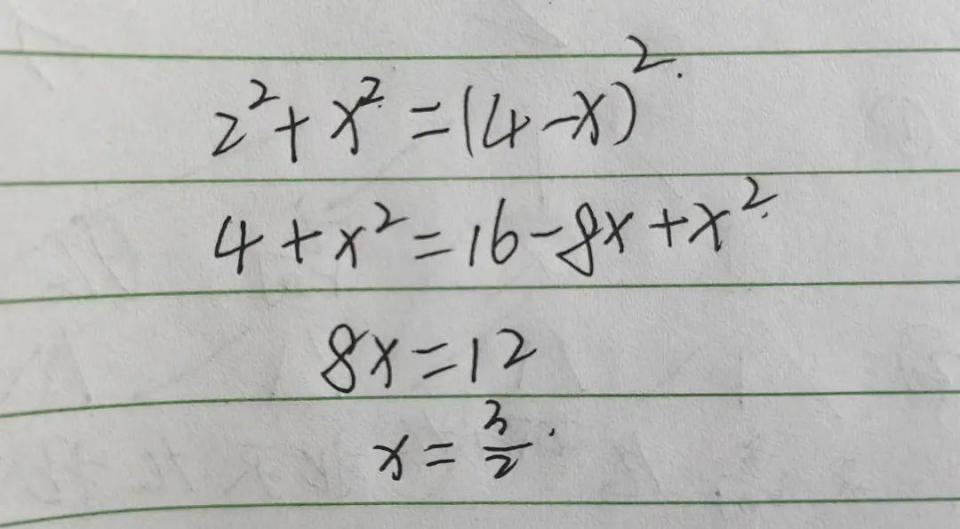 2² + x² = (4-x)².
4 + x² = 16 - 8x + x²
8x = 12
x = 3/2.